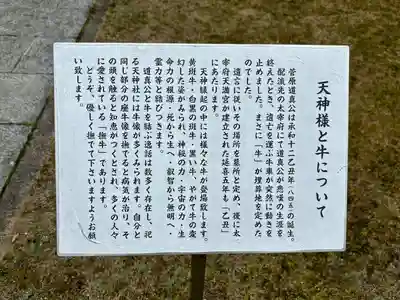 天神様と牛について
菅原道真公は承和十二乙丑年(八四五)の誕生。
配流先の太宰府にて道真公が悲嘆の生涯を
終えたとき、遺亡を運ぶ牛車が突然に動きを
止めました。まさに「牛」が埋葬地を定めた
のでした。
遺言に従いその場所を墓所と定め、後に太
宰府天満宮が建立された延喜五年も「乙丑」
にあたります。
天神縁起の中には様々な牛が登場致します。
黄斑牛・白黒の斑牛・黒い牛、やがて牛の変
幻した姿がみられ、神秘の力・宇宙の力・生
命力の根源・死から生へ・叡智から無明へ・
霊力等と結びつきます。
道真公と牛を結ぶ逸話は数多く存在し、祀
る天神社には牛像が多くみられます。自分と
同じ部分の座牛像を撫でると病気が治り、そ
の頭を触ると知恵がつくとされ、多くの人々
に愛されている「撫牛」であります。
どうぞ、優しく撫でて下さいますようお願
い致します。